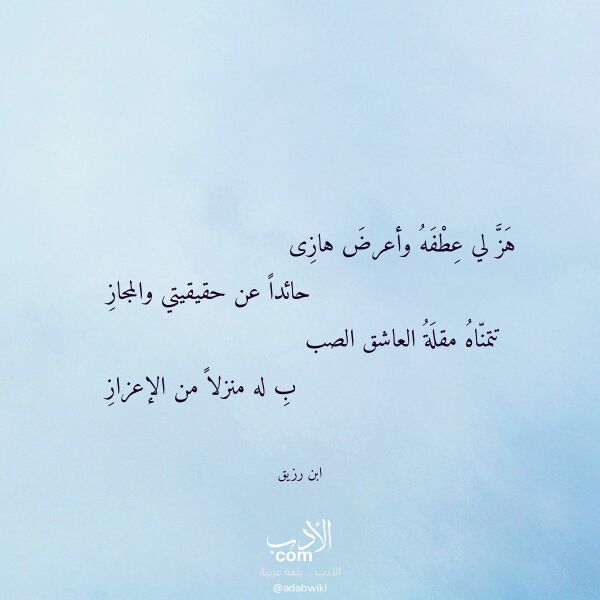 هَزَّ لي عِطْفَهُ وأعرضَ هازِى
حائداً عن حقيقيتي والمجازِ
تتمنّاهُ مقلَةُ العاشق الصب
بِ له منزلاً من الإعزازِ
ابن رزيق
الأدب
com
الأدب .. بلغة عربية
@adabwiki